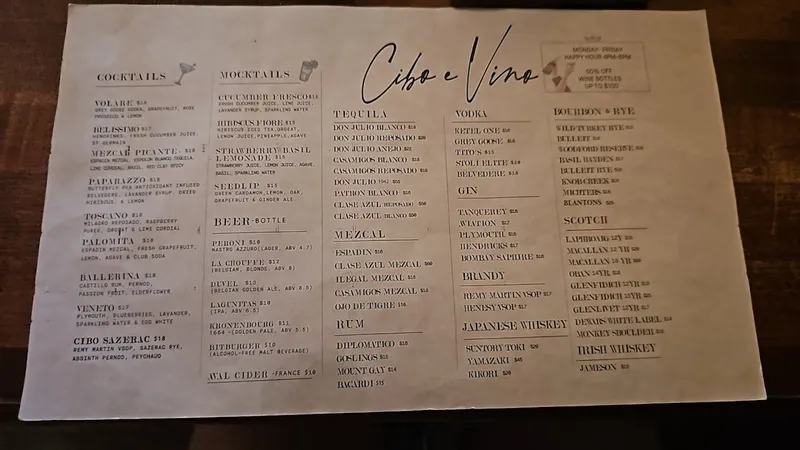 Cibo e Vino
MONDAY-FRIDAY
HAPPY HOUR 4PM-6PM
50% OFF
WINE BOTTLES
UP TO $100
COCKTAILS
VOLARE $18
GREY GOOSE VODKA, GRAPEFRUIT, ROSE
PROSECCO & LEMON
BELISSIMO $17
HENDRICKS, FRESH CUCUMBER JUICE,
ST GERMAIN
MEZCAL PICANTE $18
ESPADIN MEZCAL, ESPOLON BLANCO TEQUILA,
LIME CORDIAL, BASIL, RED CLAY SPICY
PAPARAZZO $18
BUTTERFLY PEA ANTIOXIDANT INFUSED
BELVEDERE, LAVENDER SYRUP, DRIED
HIBISCUS, & LEMON
TOSCANO $18
MILAGRO REPOSADO, RASPBERRY
PUREE, ORGEAT & LIME CORDIAL
PALOMITA $18
ESPADIN MEZCAL, FRESH GRAPEFRUIT,
LEMON, AGAVE & CLUB SODA
BALLERINA $18
CASTILLO RUM, PERNOD,
PASSION FRUIT, ELDERFLOWER
VENETO $17
PLYMOUTH, BLUEBERRIED, LAVENDER,
SPARKLING WATER & EGG WHITE
CIBO SAZERAC $18
REMY MARTIN VSOP, SAZERAC RYE,
ABSINTH PERNOD, PEYCHAUD
MOCKTAILS
CUCUMBER FRESCO $15
FRESH CUCUMBER JUICE, LIME JUICE,
LAVENDER SYRUP, SPARKLING WATER
HIBISCUS FIORE $15
HIBISCUS ICED TEA, ORGEAT,
LEMON JUICE, PINEAPPLE, AGAVE
STRAWBERRY BASIL
LEMONADE $15
STRAWBERRY JUICE, LEMON JUICE, AGAVE,
BASIL, SPARKLING WATER
SEEDLIP $15
GREEN CARDAMON, LEMON, OAK,
GRAPEFRUIT & GINGER ALE
BEER-BOTTLE
PERONI $10
NASTRO AZZURO (LAGER, ABV 4.7)
LA CHOUFFE $12
(BELGIAN, BLONDE, ABV 8)
DUVEL $10
(BELGIAN GOLDEN ALE, ABV 8.5)
LAGUNITAS $10
(IPA, ABV 6.5)
KRONENBOURG $11
1664 -(GOLDEN PALE, ABV 5.5)
BITBURGER $10
(ALCOHOL-FREE MALT BEVERAGE)
AVAL CIDER -FRANCE $10
TEQUILA
DON JULIO BLANCO
DON JULIO REPOSADO
DON JULIO ANEJO
CASAMIGOS BLANCO
CASAMIGOS REPOSADO
DON JULIO 1942
PATRON BLANCO
CLASE AZUL REPOSADO
CLASE AZUL BLANCO
MEZCAL
ESPADIN
CLASE AZUL MEZCAL
ILEGAL MEZCAL
CASAMIGOS MEZCAL
OJO DE TIGRE $16
RUM
DIPLOMATICO
GOSLINGS
MOUNT GAY $14
BACARDI $15
VODKA
KETEL ONE
GREY GOOSE
TITO'S $15
STOLI ELITE
BELVEDERE
GIN
TANQUEREY
AVIATION $17
PLYMOUTH
HENDRICKS $17
BOMBAY SAPHIRE
BRANDY
REMY MARTIN VSOP $17
HENESY VSOP $17
JAPANESE WHISKEY
SUNTORY TOKI $20
YAMAZAKI $45
KIKORI $20
BOURBON & RYE
WILD TURKEY RYE
BULLEIT
WOODFORD RESERVE
BASIL HAYDEN $17
BULLEIT RYE
KNOB CREEK
MICHTERS
BLANTONS
SCOTCH
LAPHROAIG 12Y
MACALLAN 12 YR
MACALLAN
OBAN 14YR
GLENFIDICH 12YR
GLENFIDICH
GLENLIVET 12YR
DEWARS WHITE LABEL
MONKEY SHOULDER
IRISH WHISKEY
JAMESON